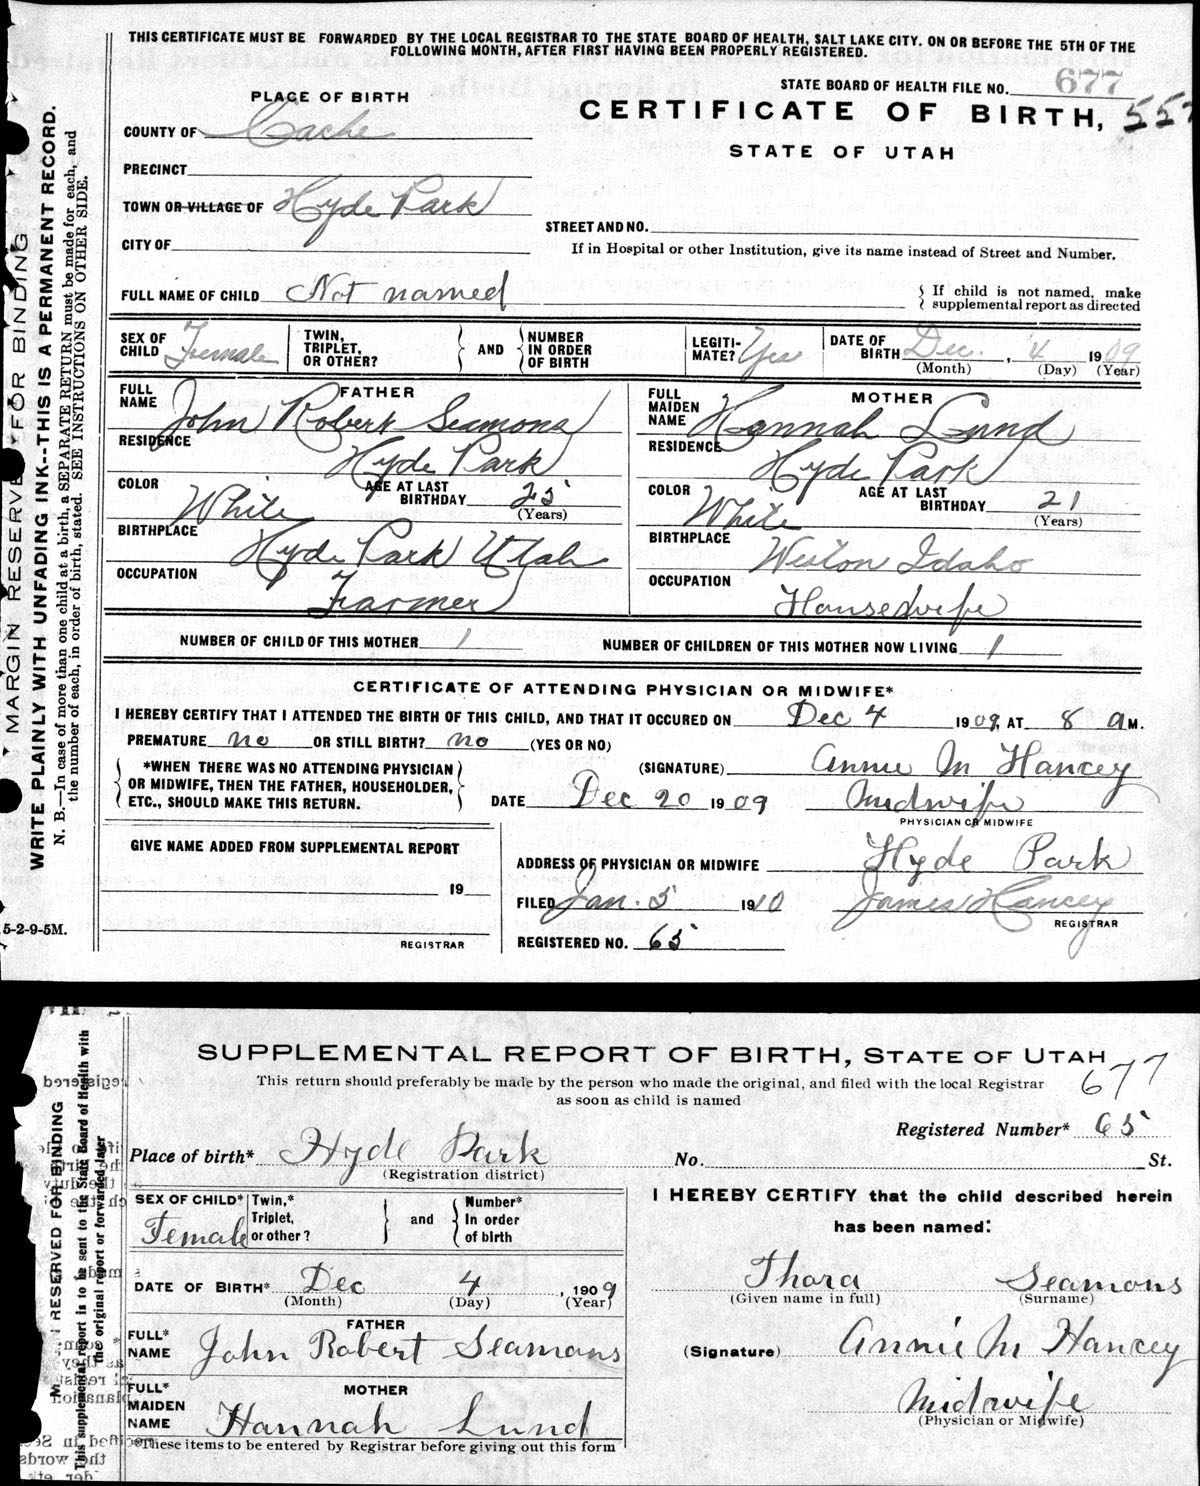 THIS CERTIFICATE MUST BE FORWARDED BY THE LOCAL REGISTRAR TO THE STATE BOARD OF HEALTH, SALT LAKE CITY. ON OR BEFORE THE 5TH OF THE
FOLLOWING MONTH, AFTER FIRST HAVING BEEN PROPERLY REGISTERED.
STATE BOARD OF HEALTH FILE NO. 677
PLACE OF BIRTH
CERTIFICATE OF BIRTH, 557
STATE OF UTAH
COUNTY OF Cache
PRECINCT
TOWN OR VILLAGE OF Hyde Park
STREET AND NO.
CITY OF
If in Hospital or other Institution, give its name instead of Street and Number.
FULL NAME OF CHILD Not named
If child is not named, make
supplemental report as directed
SEX OF CHILD Female
TWIN, TRIPLET, OR OTHER? AND NUMBER IN ORDER OF BIRTH
LEGITIMATE? Yes
DATE OF BIRTH Dec. , 4 1909
(Month) (Day) (Year)
FATHER
FULL NAME John Robert Seamons
RESIDENCE Hyde Park
COLOR White AGE AT LAST BIRTHDAY 25
(Years)
BIRTHPLACE Hyde Park Utah
OCCUPATION Farmer
MOTHER
FULL MAIDEN NAME Hannah Lund
RESIDENCE Hyde Park
COLOR White AGE AT LAST BIRTHDAY 21
(Years)
BIRTHPLACE Weston Idaho
OCCUPATION Housewife
NUMBER OF CHILD OF THIS MOTHER 1 NUMBER OF CHILDREN OF THIS MOTHER NOW LIVING 1
CERTIFICATE OF ATTENDING PHYSICIAN OR MIDWIFE*
I HEREBY CERTIFY THAT I ATTENDED THE BIRTH OF THIS CHILD, AND THAT IT OCCURED ON Dec 4 1909, AT 8 a M.
PREMATURE no OR STILL BIRTH? no (YES OR NO)
*WHEN THERE WAS NO ATTENDING PHYSICIAN
OR MIDWIFE, THEN THE FATHER, HOUSEHOLDER,
ETC., SHOULD MAKE THIS RETURN.
(SIGNATURE) Annie M Hancey
DATE Dec 20 1909 Midwife
PHYSICIAN OR MIDWIFE
GIVE NAME ADDED FROM SUPPLEMENTAL REPORT
19
REGISTRAR
ADDRESS OF PHYSICIAN OR MIDWIFE Hyde Park
FILED Jan. 5 1910 James Hancey
REGISTRAR
REGISTERED NO. 65
5-2-9-5M.
MARGIN RESERVED FOR BINDING
WRITE PLAINLY WITH UNFADING INK--THIS IS A PERMANENT RECORD.
N. B.—In case of more than one child at a birth, a SEPARATE RETURN must be made for each, and
the number of each, in order of birth, stated. SEE INSTRUCTIONS ON OTHER SIDE.
SUPPLEMENTAL REPORT OF BIRTH, STATE OF UTAH
677
This return should preferably be made by the person who made the original, and filed with the local Registrar
as soon as child is named
Registered Number* 65
Place of birth* Hyde Park
(Registration district)
No. St.
SEX OF CHILD* Female
Twin,* Triplet, or other? and Number* In order of birth
DATE OF BIRTH* Dec 4, 1909
(Month) (Day) (Year)
FATHER
FULL* NAME John Robert Seamons
MOTHER
FULL* MAIDEN NAME Hannah Lund
*These items to be entered by Registrar before giving out this form
I HEREBY CERTIFY that the child described herein
has been named:
Thora Seamons
(Given name in full) (Surname)
(Signature) Annie M Hancey
Midwife
(Physician or Midwife)
RESERVED FOR BINDING
This supplemental report is to be sent to the State Board of Health with
the original report or forwarded later